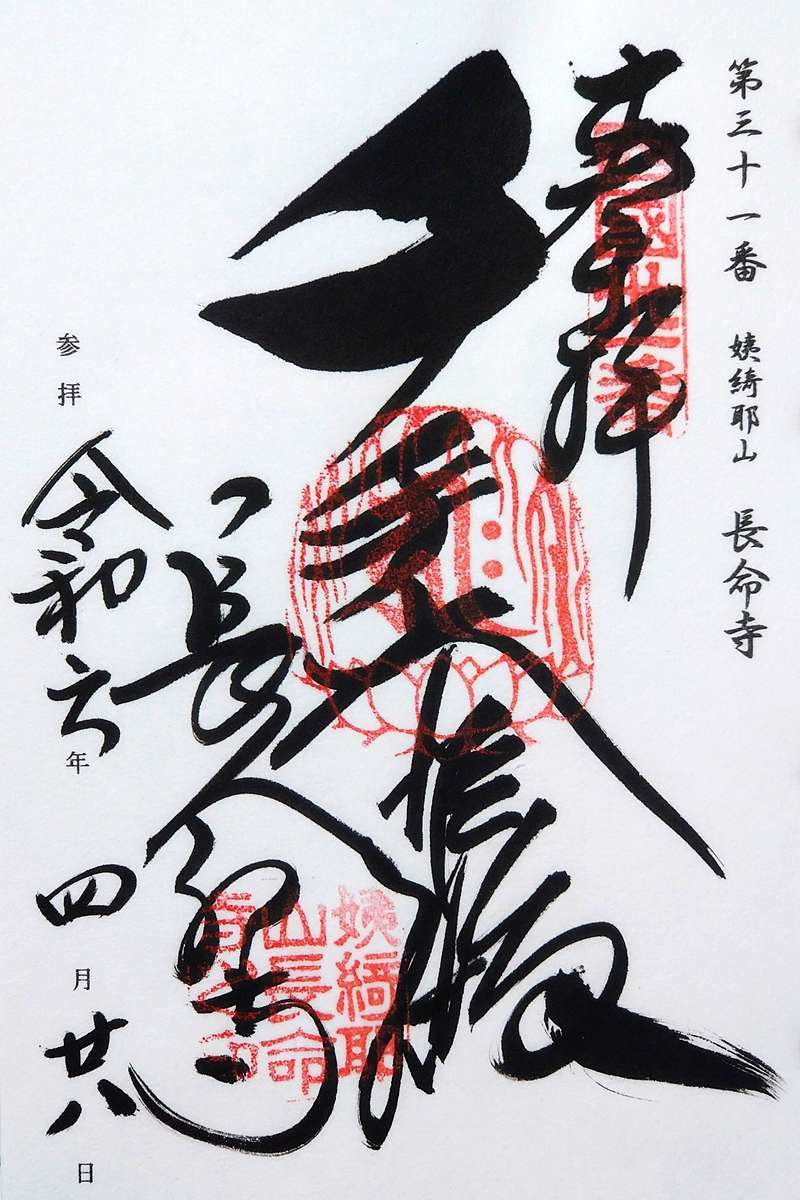 第三十一番 姨綺耶山 長命寺
奉拝
西國卅一番
長命寺
姨綺耶
山長命
寺之印
参拝 令和六年 四月廿八日